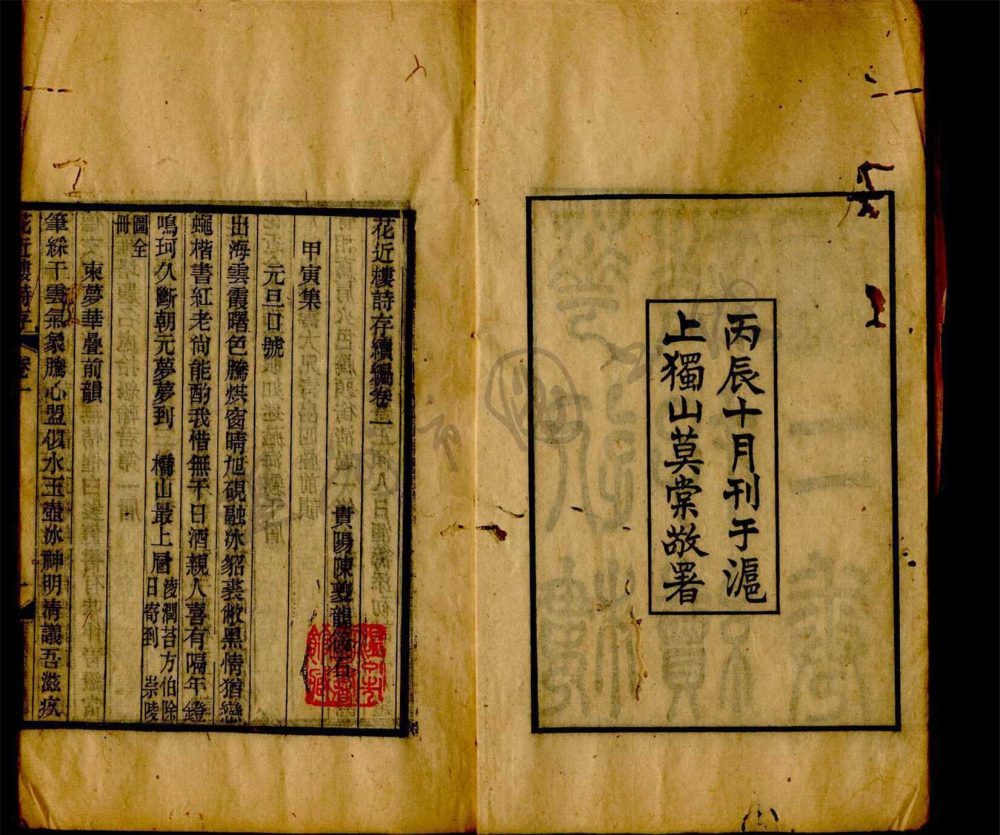 丙辰十月刊于滬
上獨山莫棠敬署
花近樓詩存續編卷一
甲寅集
貴陽陳夔龍筱石
元旦口號
出海雲霞曙色騰烘窗晴旭硯融冰貂裘敝黑情猶戀
蠅楷書紅老尚能酌我惜無千日酒親人喜有隔年鐙
鳴珂久斷朝元夢夢到三橋山最上層淩潤苔方伯除日寄到崇陵
圖全冊
柬夢華疊前韻
筆綵干雲氣象騰心盟似水玉壺冰神明清議吾滋疚
花近樓詩存 卷一